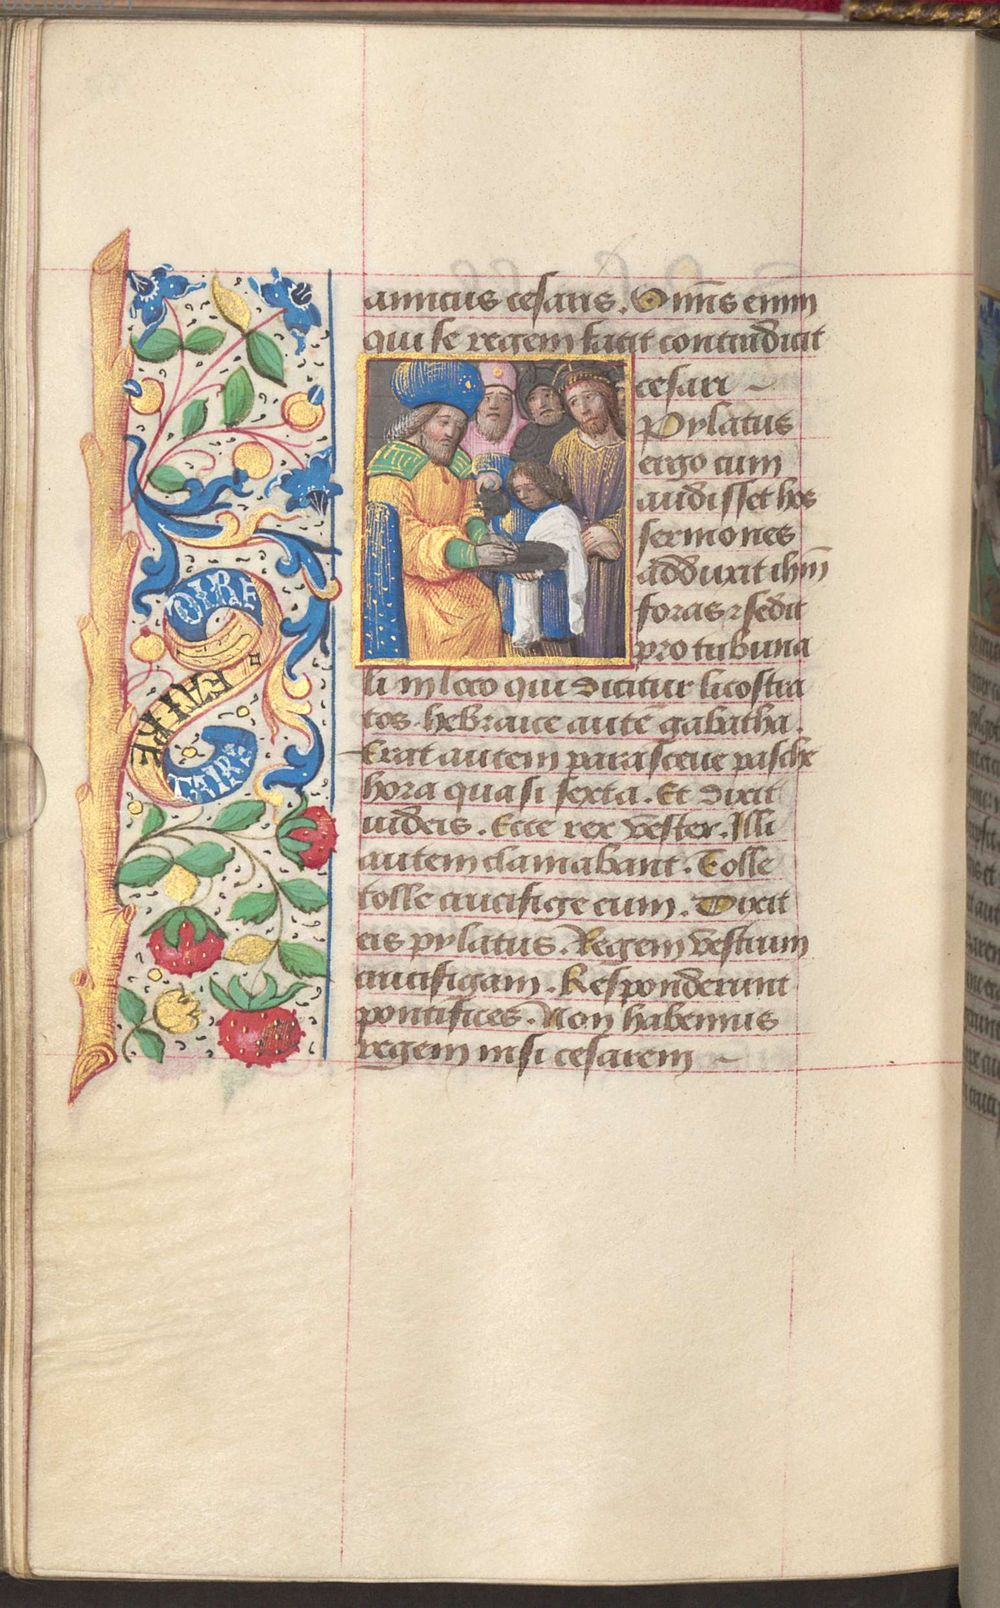 OIRE
FAIRE
TAIRE
amicus cesaris. Omīs enim
qui se regem facit contradicit
cesari
Pylatus
ergo cum
audisset hos
sermones
adduxit ihm̄
foras ⁊ sedit
pro tribuna
li in loco qui dicitur licostra
tos. hebraice autē gabatha.
Erat autem parasceue pasche
hora quasi sexta. Et dixit
iudeis. Ecce rex vester. Illi
autem clamabant. Tolle
tolle crucifige eum. Dixit
eis pylatus. Regem vestrum
crucifigam. Responderunt
pontifices. Non habemus
regem nisi cesarem